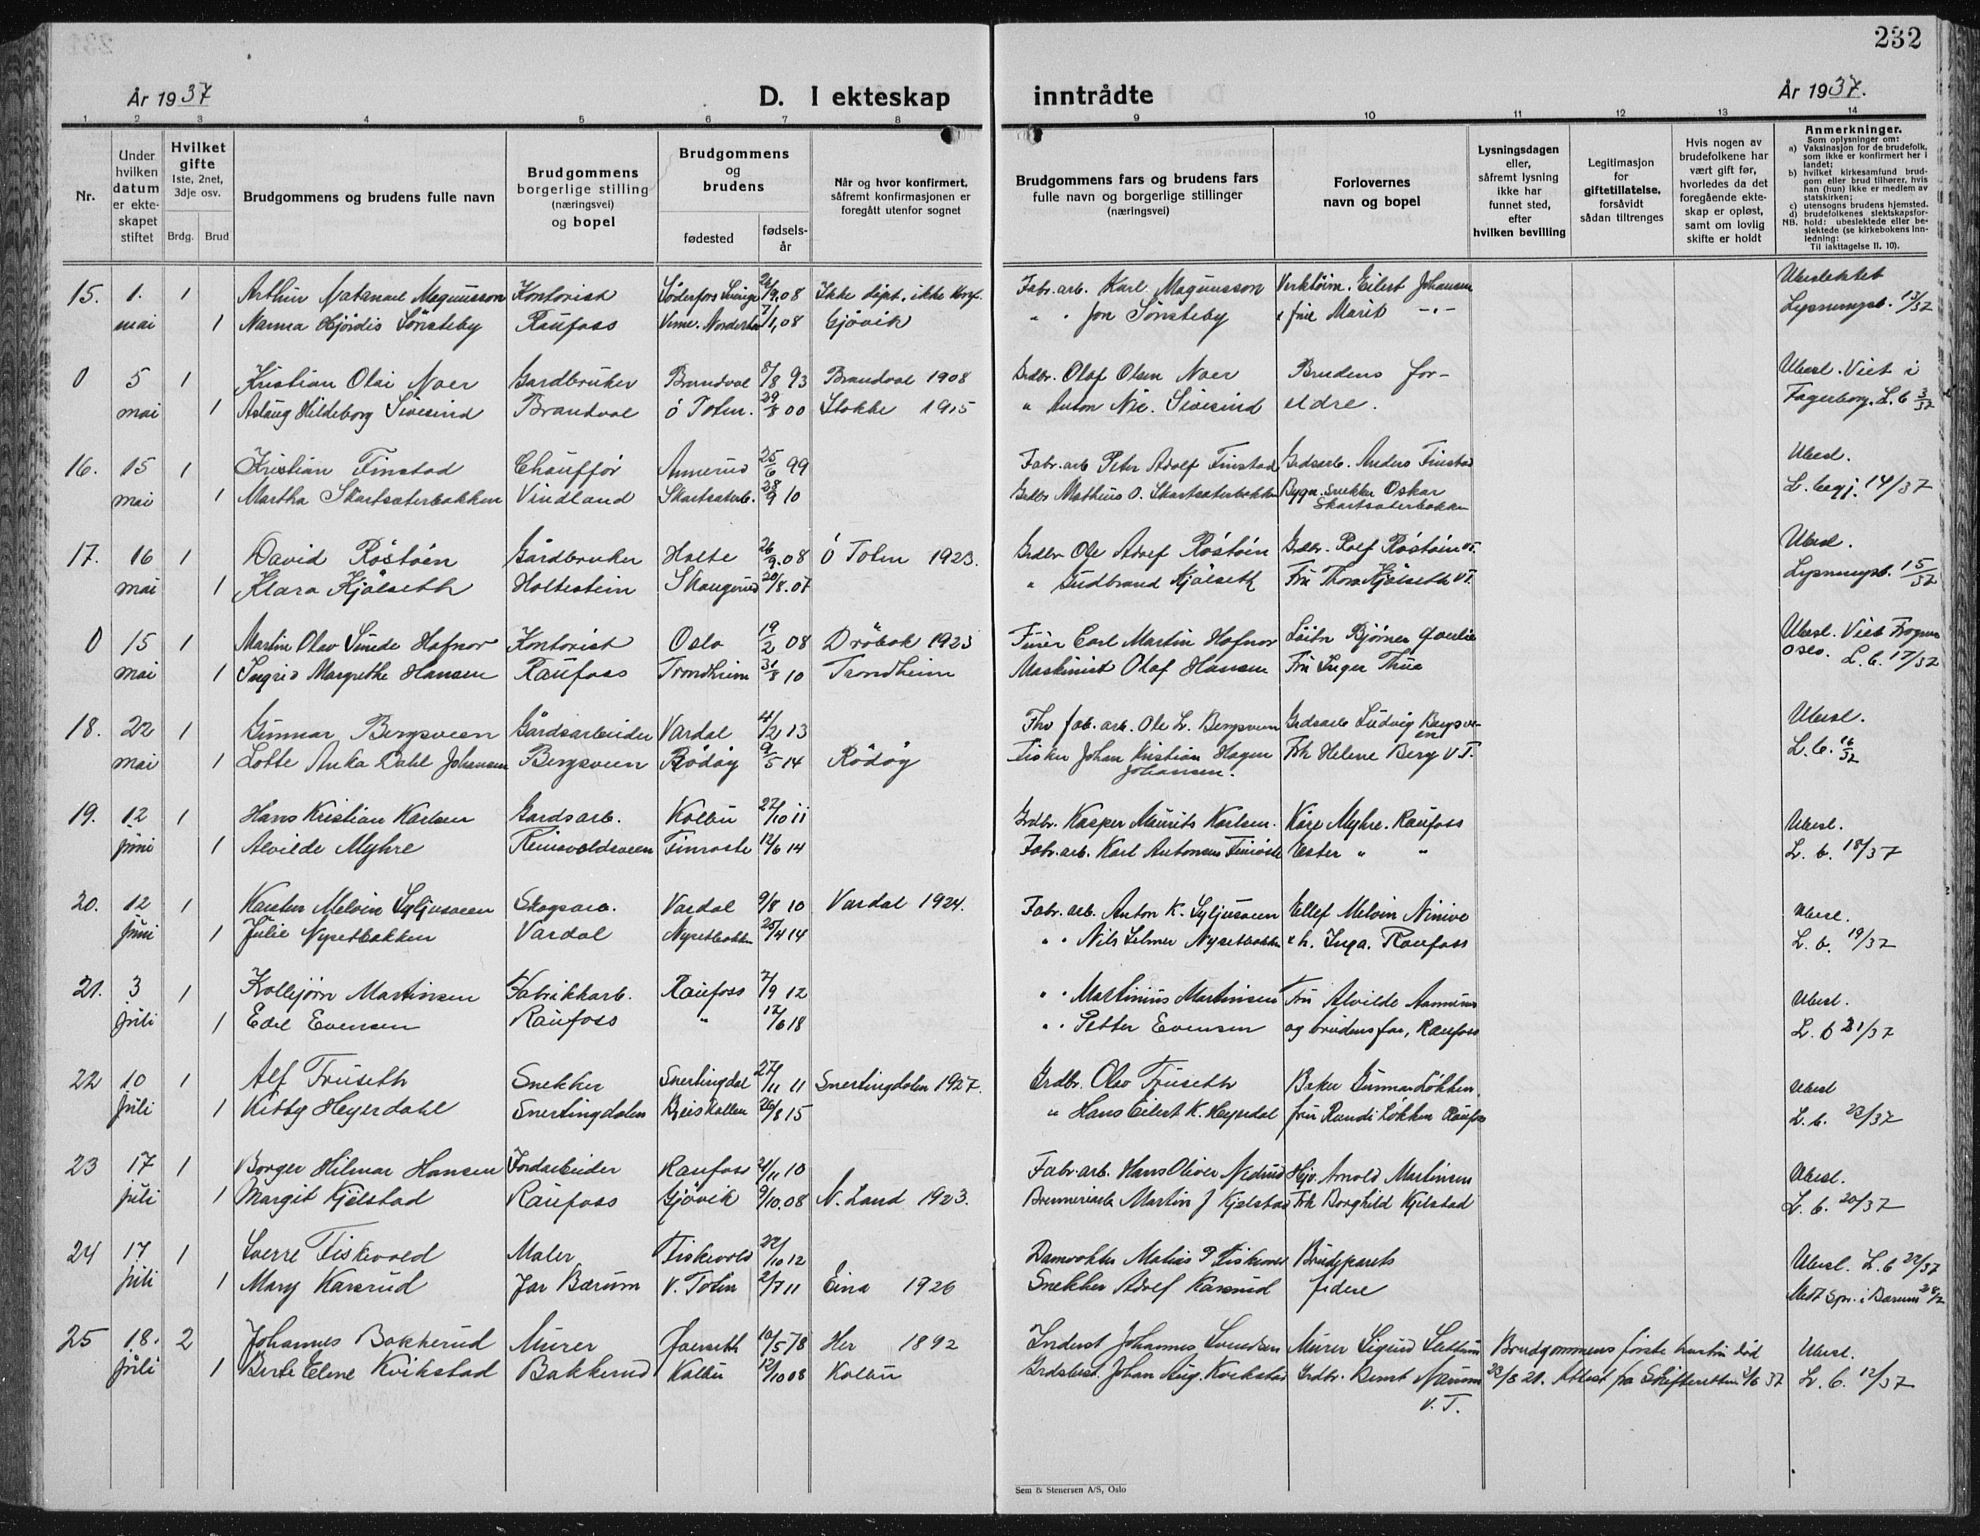 232
År 1937
D. I ekteskap inntrådte
År 1937.
1 2 3 4 5 6 7 8 9 10 11 12 13 14
Nr.
Under hvilken datum er ekteskapet stiftet
Hvilket gifte
1ste, 2net, 3dje osv.
Brdg. Brud
Brudgommens og brudens fulle navn
Brudgommens borgerlige stilling (næringsvei) og bopel
Brudgommens og brudens
fødested
fødselsår
Når og hvor konfirmert, såfremt konfirmasjonen er foregått utenfor sognet
Brudgommens fars og brudens fars fulle navn og borgerlige stillinger (næringsvei)
Forlovernes navn og bopel
Lysningsdagen eller, såfremt lysning ikke har funnet sted, efter hvilken bevilling
Legitimasjon for giftetillatelse, forsåvidt sådan tiltrenges
Hvis nogen av brudefolkene har vært gift før, hvorledes da det foregående ekteskap er opløst, samt om lovlig skifte er holdt
Anmerkninger.
Som oplysninger om:
a) Vaksinasjon for de brudefolk, som ikke er konfirmert her i landet;
b) hvilket kirkesamfund brudgom eller brud tilhører, hvis han (hun) ikke er medlem av statskirken;
c) utensogns brudens hjemsted.
d) brudefolkenes slektskapsforhold: ubeslektede eller beslektede (se kirkebokens innledning:
NB. Til iakttagelse II, 10).
15. 1. 1 Arthur Natanael Magnusson Kontorist Söderfors Sverige 9.08 Ikke döpt, ikke konf. Fabr. arb. Karl Magnusson Verktöim. Eilert Johansen Ubeslektet
mai 1 Nanna Hjördis Sönsteby Raufoss 7/1,08 Gjövik " " Jon Sönsteby & frue Marit -"- Lysningsb. 13/37
0 5 1 Kristian Olai Noer Gardbruker Brandval 8/8 93 Brandval 1908 Grdbr. Olaf Olsen Noer Brudens for- Ubesl. Viet i
mai 1 Aslaug Hildeborg Sivesind Brandval Ö Toten. 29/8 00 Stokke 1915 " Anton Nic. Sivesind eldre. Fagerborg. L.b 3/37
16. 15 1 Kristian Finstad Chaufför Annerud 25/6 99 Fabr. arb Peter Adolf Finstad Grdsarb. Anders Finstad Ubesl.
mai 1 Martha Skartsæterbakken Vindland Skartsæterb. 28/9 10 Grdbr Mathius O. Skartsæterbakken Bygn. snekker Oskar Skartsæterbakken L. begj. 14/37
17. 16 1 David Röstöen Gårdbruker Holte 26/9.08 Ö Toten 1923. Grdbr Ole Adolf Röstöen Grdbr. Rolf Röstöen V.T. Ubesl.
mai 1 Klara Kjölseth Holtestein Skaugerud 20/8.07 " Gudbrand Kjölseth Fru Thora Kjölseth V.T. Lysningsb. 15/37
0 15 1 Martin Olav Sunde Hafnor Kontorist Oslo 19/2 08 Dröbak 1923 Furer Carl Martin Hafnor Löitn Bjørner Ubesl. Viet Frogner
mai 1 Ingrid Margrethe Hansen Raufoss Trondheim 31/8 10 Trondheim Maskinist Olaf Hansen Fru Inger Thue Oslo. L.b. 17/37
18. 22 1 Gunnar Bergsveen Gårdsarbeider Vardal 4/2 13 Fhv fab. arb. Ole L. Bergsveen Grdsarb Ludvig Bergsveen Ubesl.
mai 1 Lotte Anka Dahl Johansen Bergsveen Rödöy 9/5 14 Rödöy Fisker Johan Kristian Hagen Johansen. Frk Helene Berg V.T. L.b. 16/37
19. 12 1 Hans Kristian Karlsen Gardsarb. Kolbu 27/10 11 Grdbr. Kasper Maurits Karlsen. Kåre Myhre. Raufoss Ubesl.
juni 1 Alvilde Myhre Reinsvoldsveen Finroste 12/6 14 Fabr. arb. Karl Antonsen Finroste Ester " " L. b. 18/37
20. 12 1 Karsten Melvin Syljusveen Skogsarb. Vardal 9/8 10 Vardal 1924. Fabr. arb. Anton K. Syljusveen Ellef Melvin Ninive Ubesl.
juni 1 Julie Nysetbakken Vardal Nysetbakken 25/4 14 " " Nils Selmer Nysetbakken & h. Inga. Raufoss L. b. 19/37
21. 3 1 Kolbjörn Martinsen Fabrikkarb. Raufoss 7/9 12 " " Martinius Martinsen Fru Alvilde Aannerud Ubesl.
juli 1 Edel Evensen Raufoss " 17/6 18 " " Petter Evensen og brudens far, Raufoss L. b 21/37
22 10 1 Alf Fruseth Snekker Snertingdal 27/11 11 Snertingdalen 1927. Grdbr. Olav Fruseth Baker Gunnar Løkken. Ubesl
juli 1 Kitty Heyerdahl Snertingdalen 26/8 15 " Hans Eilert K. Heyerdal fru Randi Løkken Raufoss L. b. 23/37
23 17 1 Borger Hilmar Hansen Jordarbeider Raufoss 21/11 10 Fabr arb. Hans Oliver Nedrud Hjv. Arnold Martinsen Ubesl.
juli 1 Margit Kjelstad Raufoss Gjövik 9/10.08 N. Land 1923. Brenneriarb Martin J Kjelstad Frk Borghild Kjelstad L. b. 20/37
24 17 1 Sverre Fiskevold Maler Fiskevold 22/10 12 Damvokter Matias P Fiskevold Brudeparets Ubesl. L. b 22/37
juli 1 Mary Karsrud Jar Bærum V. Toten 2/7 11 Eina 1926 Snekker Adolf Karsrud fedre Medt Spr. i Bærum
25 18. 2 Johannes Bakkerud Murer 10/5 78 Her 1892 Inderst Johannes Svendsen Murer Sigurd Slettum Brudgommens første hustru död Ubesl.
juli 1 Berte Elene Kvikstad Bakkerud Kolbu 12/10 08 Kolbu Grdsbest. Johan Aug. Kvikstad Grdbr. Bernt Nærum V.T. 23/8 21. Attest fra Skifteretten 1/6 37 L. b. 12/37
Sem & Stenersen A/S, Oslo